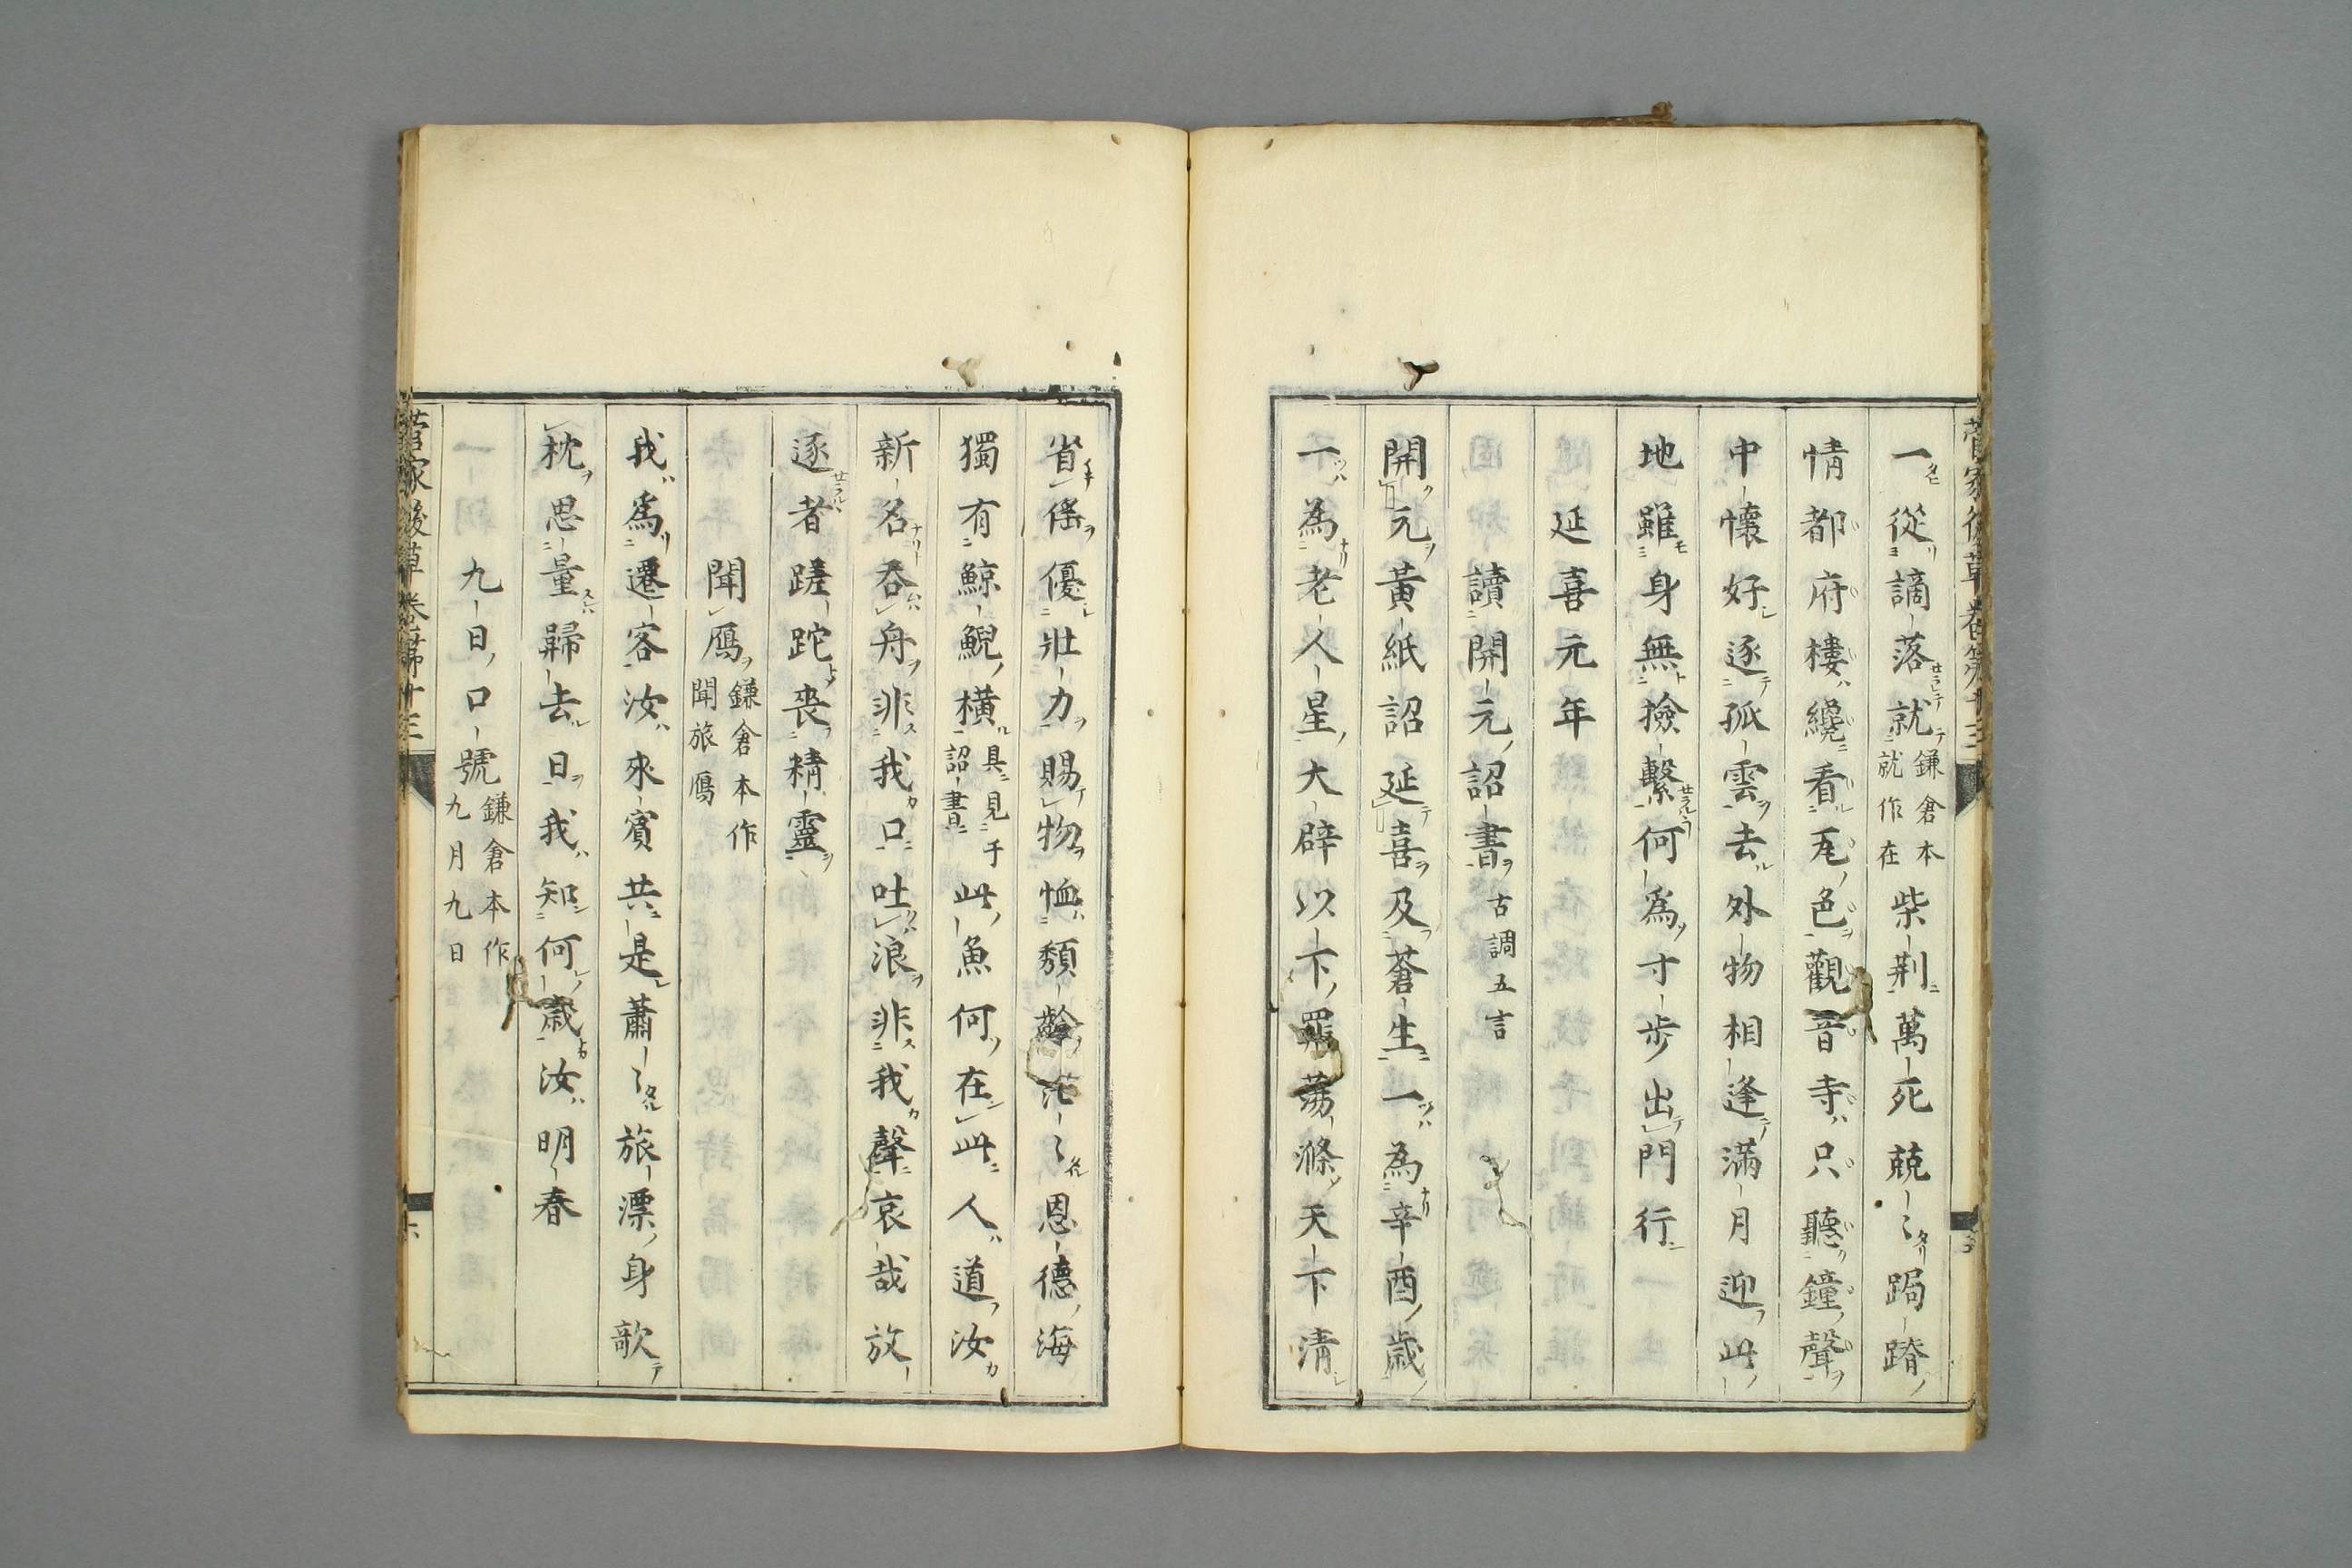 一從謫落就鎌倉本就作在柴荆萬死兢〻跼蹐
情都府樓纔看瓦色觀音寺只聽鐘聲
中懷好逐孤雲去外物相逢滿月迎此
地雖身無撿繫何爲寸步出門行
延喜元年
讀開元詔書古調五言
開元黃紙詔延喜及蒼生一為辛酉歲
一為老人星大辟以下罪蕩滌天下清
省徭優壯力賜物恤頽齡茫〻恩德海
獨有鯨鯢橫具見于詔書此魚何在此人道汝
新名吞舟非我口吐浪非我聲哀哉放
逐者蹉跎喪精靈
聞鴈鎌倉本作聞旅鴈
我爲遷客汝來賓共是蕭〻旅漂身欹
枕思量歸去日我知何歲汝明春
九日口號鎌倉本作九月九日
菅家後草卷第十三